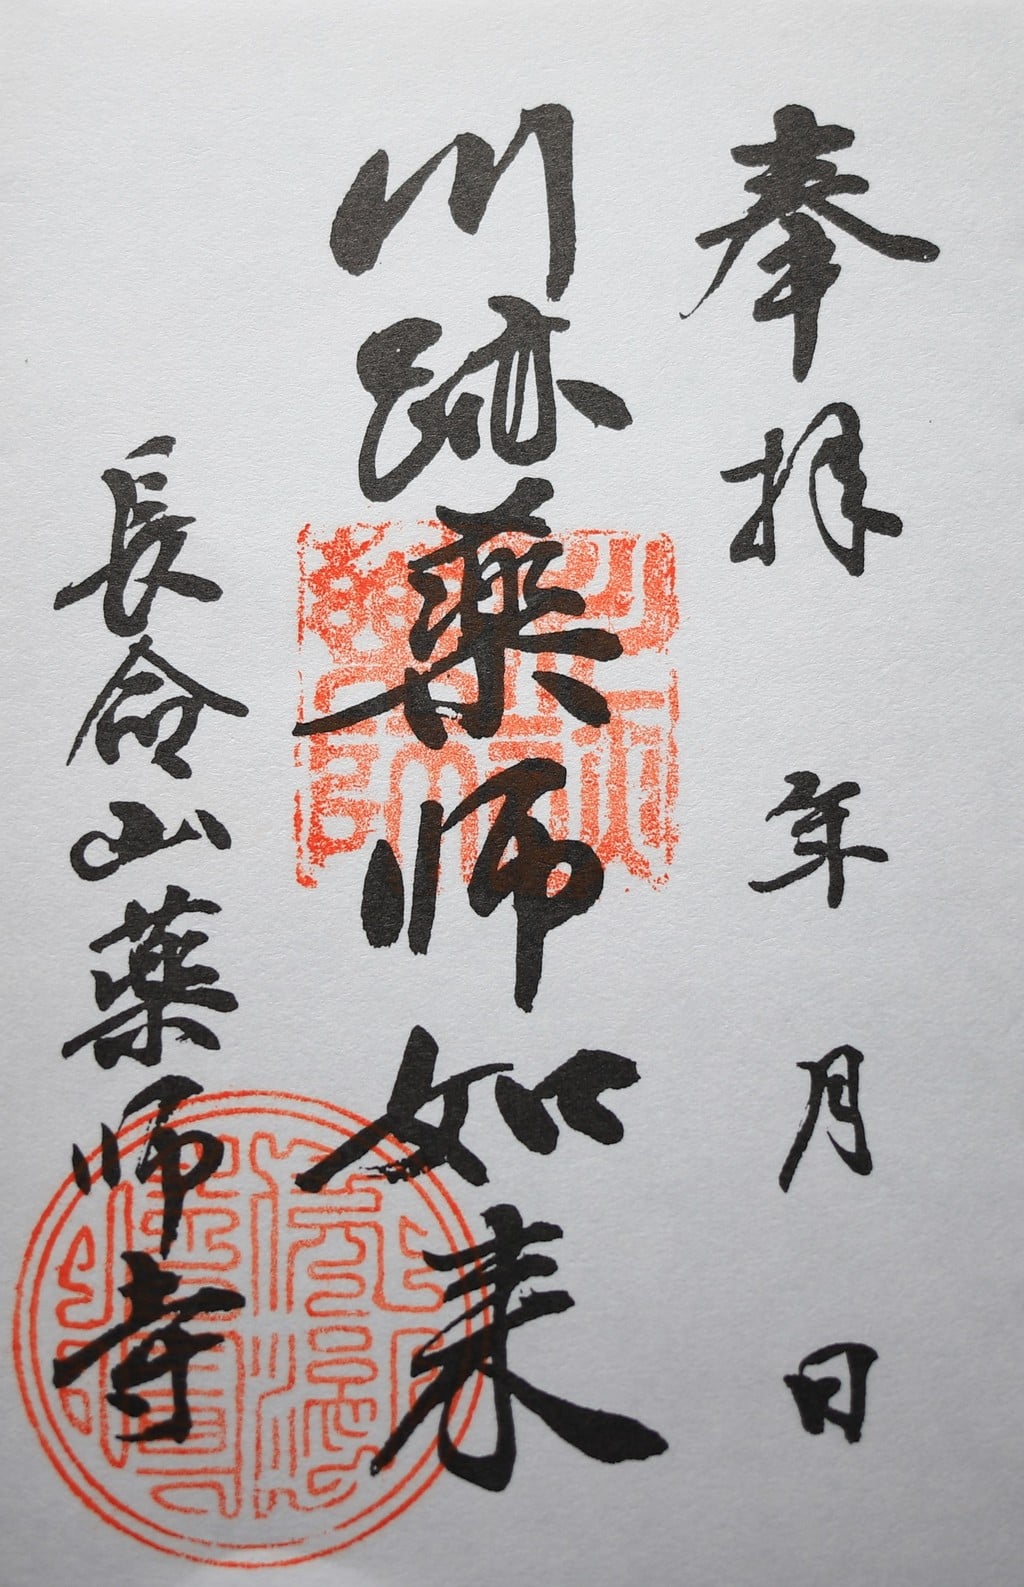 奉拝　年　月　日
川跡薬師如来
長命山薬師寺